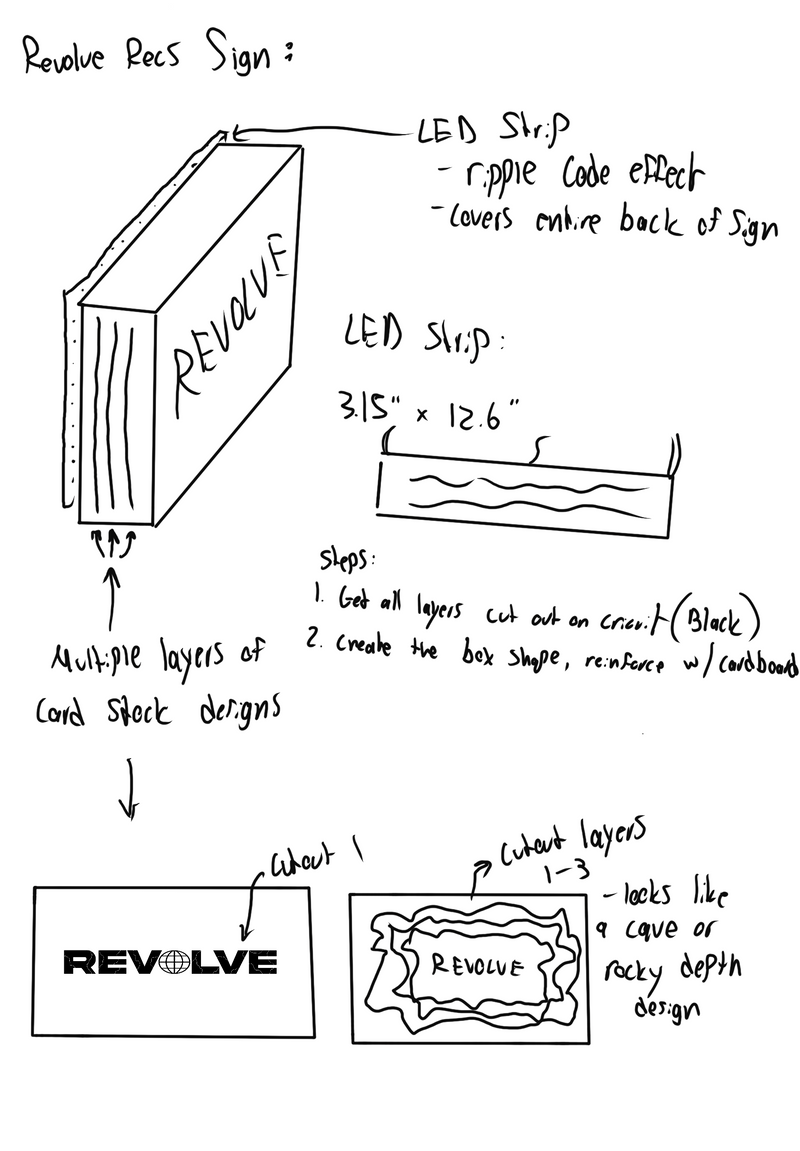 Revolve Recs Sign:
LED Strip
- ripple code effect
- covers entire back of sign
REVOLVE
LED Strip:
3.15" x 12.6"
Steps:
1. Get all layers cut out on cricut (Black)
2. Create the box shape, reinforce w/ cardboard
Multiple layers of
Card stock designs
cutout 1
REVOLVE
cutout layers
1-3
REVOLVE
- looks like
a cave or
rocky depth
design